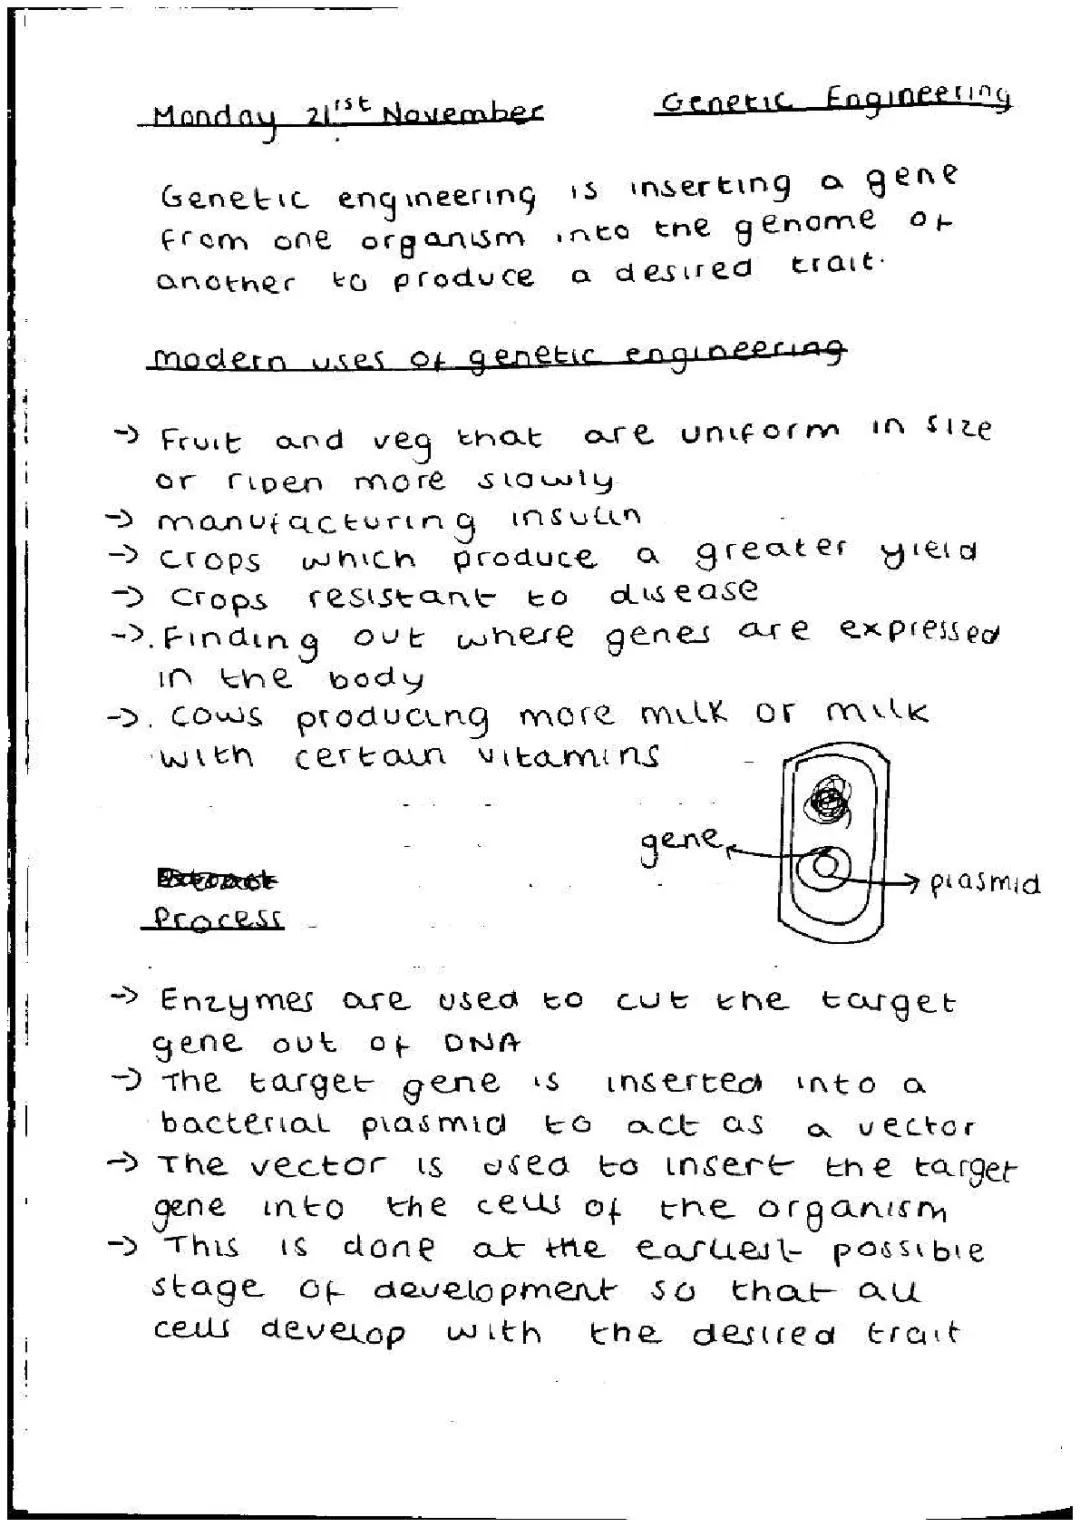 Monday 21st November Genetic Engineering
Genetic engineering is inserting a gene
from one organism into the genome of
another to produce a desired trait.
Modern uses of genetic engineering
→ Fruit and veg that are uniform in size
or ripen more slowly
→ manufacturing insulin
→ Crops which produce a greater yield
→ Crops resistant to disease
→. Finding out where genes are expressed
in the body
→. Cows producing more milk or milk
with certain vitamins
gene
plasmid
Process
→ Enzymes are used to cut the target
gene out of DNA
→ The target gene is inserted into a
bacterial plasmid to act as a vector
→ The vector is used to insert the target
gene into the cells of the organism
→ This is done at the earliest possible
stage of development so that all
cells develop with the desired trait